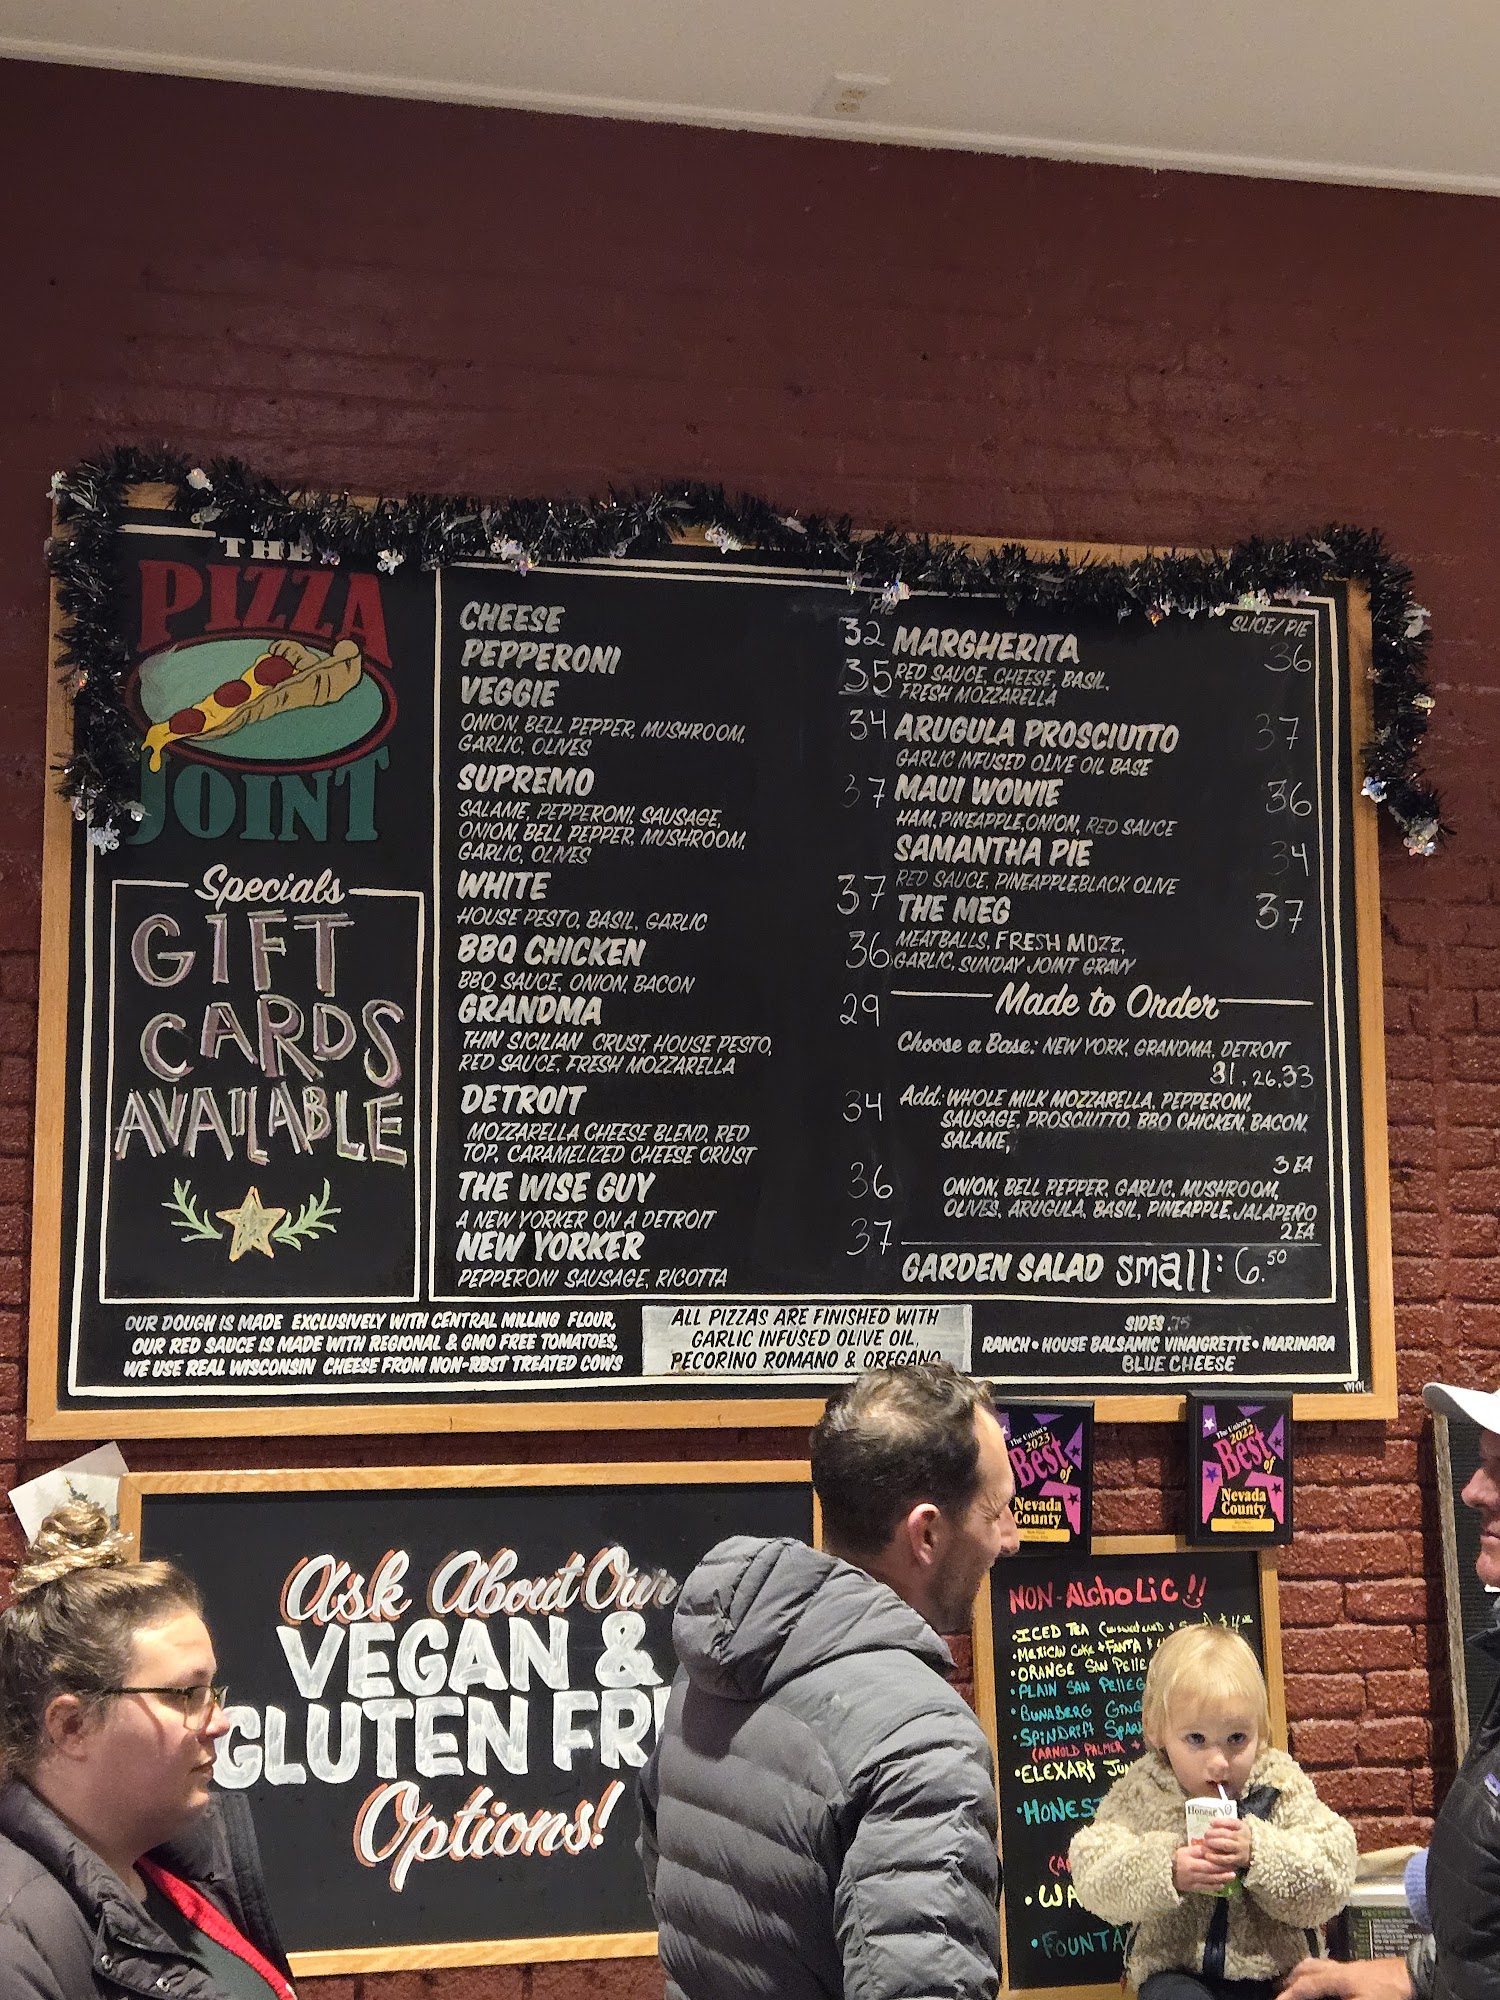 THE
PIZZA
JOINT
Specials
GIFT
CARDS
AVAILABLE
PIE
CHEESE 32
PEPPERONI 35
VEGGIE 34
ONION, BELL PEPPER, MUSHROOM,
GARLIC, OLIVES
SUPREMO 37
SALAME, PEPPERONI, SAUSAGE,
ONION, BELL PEPPER, MUSHROOM,
GARLIC, OLIVES
WHITE 37
HOUSE PESTO, BASIL, GARLIC
BBQ CHICKEN 36
BBQ SAUCE, ONION, BACON
GRANDMA 29
THIN SICILIAN CRUST, HOUSE PESTO,
RED SAUCE, FRESH MOZZARELLA
DETROIT 34
MOZZARELLA CHEESE BLEND, RED
TOP, CARAMELIZED CHEESE CRUST
THE WISE GUY 36
A NEW YORKER ON A DETROIT
NEW YORKER 37
PEPPERONI SAUSAGE, RICOTTA
SLICE/PIE
MARGHERITA 36
RED SAUCE, CHEESE, BASIL,
FRESH MOZZARELLA
ARUGULA PROSCIUTTO 37
GARLIC INFUSED OLIVE OIL BASE
MAUI WOWIE 36
HAM, PINEAPPLE, ONION, RED SAUCE
SAMANTHA PIE 34
RED SAUCE, PINEAPPLE BLACK OLIVE
THE MEG 37
MEATBALLS, FRESH MOZZ,
GARLIC, SUNDAY JOINT GRAVY
Made to Order
Choose a Base: NEW YORK, GRANDMA, DETROIT
31, 26, 33
Add: WHOLE MILK MOZZARELLA, PEPPERONI,
SAUSAGE, PROSCIUTTO, BBQ CHICKEN, BACON,
SALAME,
3 EA
ONION, BELL PEPPER, GARLIC, MUSHROOM,
OLIVES, ARUGULA, BASIL, PINEAPPLE, JALAPEÑO
2 EA
GARDEN SALAD small: 6.50
OUR DOUGH IS MADE EXCLUSIVELY WITH CENTRAL MILLING FLOUR,
OUR RED SAUCE IS MADE WITH REGIONAL & GMO FREE TOMATOES,
WE USE REAL WISCONSIN CHEESE FROM NON-RBST TREATED COWS
ALL PIZZAS ARE FINISHED WITH
GARLIC INFUSED OLIVE OIL,
PECORINO ROMANO & OREGANO
SIDES .75
RANCH • HOUSE BALSAMIC VINAIGRETTE • MARINARA
BLUE CHEESE
MM
The Union's
2023
Best
of
Nevada
County
The Union's
2022
Best
of
Nevada
County
Ask About Our
VEGAN &
GLUTEN FR
Options!
NON-AlcHoLiC!!
• ICED TEA
• MEXICAN COKE + FANTA
• ORANGE SAN PELLE
• PLAIN SAN PELLEG
• BUNABERG GING
• SPINDRIFT SPAR
(ARNOLD PALMER +
• ELEXART JU
• HONES
• WA
• FOUNTA
Honest